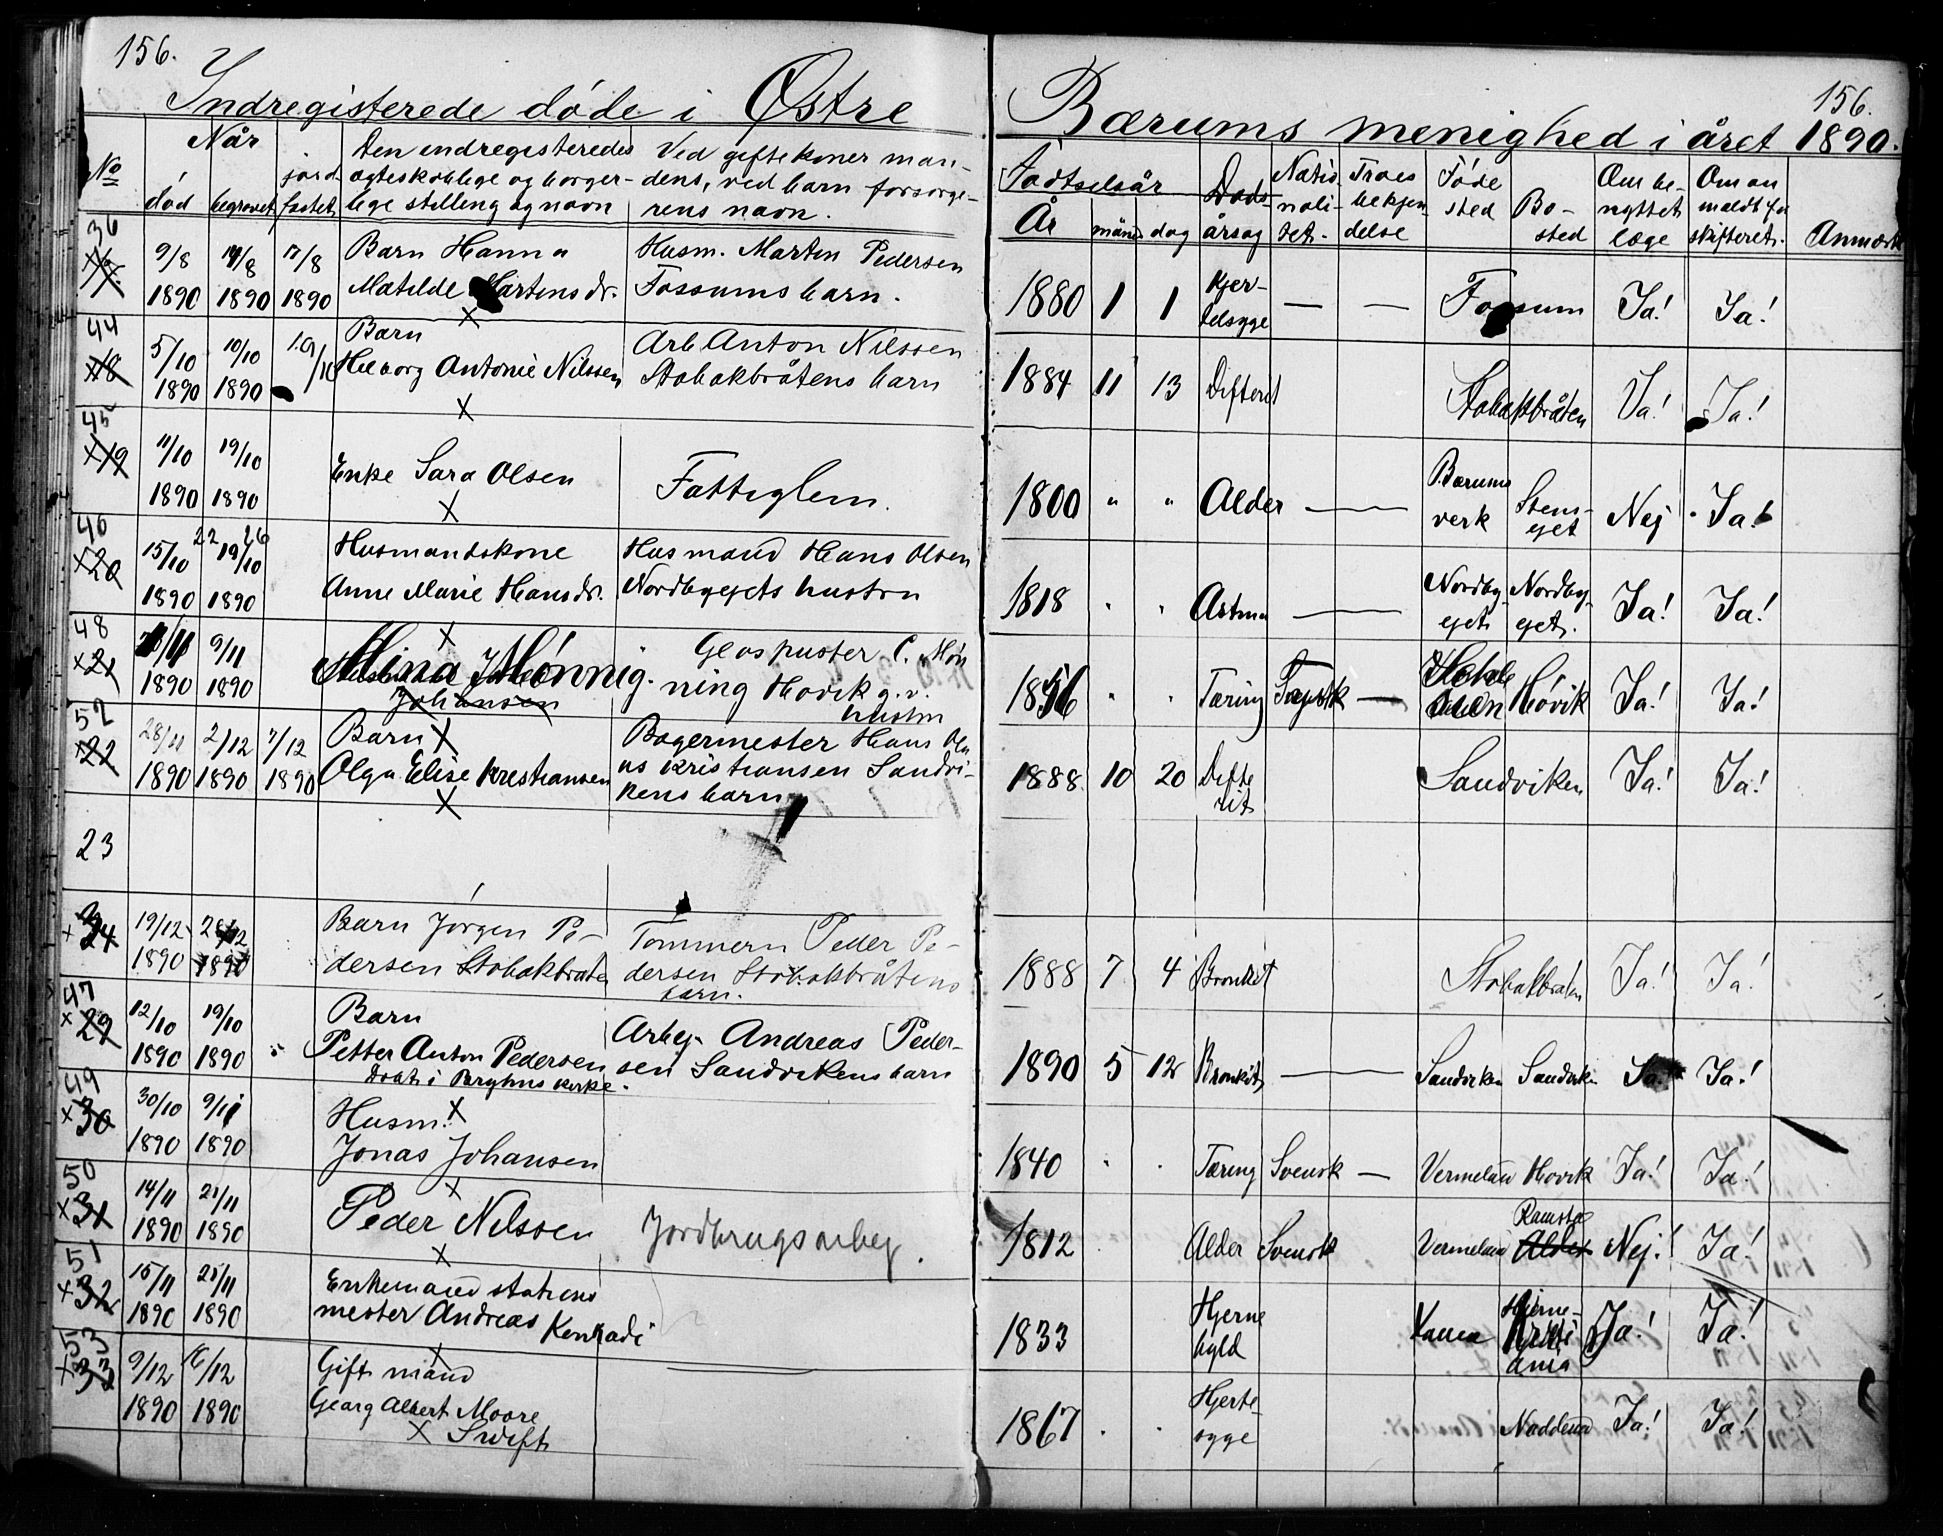 156.
156.
Indregisterede døde i Østre Bærums menighed i året 1890.
No
Når
død
begravet
jordfæstet
Den indregisteredes
ægteskablige og borger-
lige stilling og navn
Ved giftekoner man-
dens, ved barn forsørge-
rens navn.
Fødselsår
År
måned
dag
Døds-
årsag
Natio-
nali-
tet.
Troes
bekjen-
delse
Føde
sted
Bo-
sted
Om be-
nyttet
læge
Om an
meldt for
skifteret.
Anmærk
36
9/8 1890
17/8 1890
Barn Hanna
Matilde Martensdr.
Husm. Marten Pedersen
Fossums barn.
1880 1 1
Kjer-
telsyge
— —
Fossum
Ja!
Ja!
44
18
5/10 1890
10/10 1890
Barn
Antonie Nilssen
Arb Anton Nilssen
Stobakbråtens barn
1884 11 13
Difterit
Stobakbråten
Ja!
Ja!
45
19
11/10 1890
19/10 1890
Enke Sara Olsen
Fattiglem.
1800 " "
Alder
—
Bærums
verk
Stens-
eget
Nej
Ja!
46
20
15/10 1890
19/10 1890
22 26
Husmandskone
Anne Marie Hansdr.
Husmand Hans Olsen
Nordbygets hustru
1818 " "
Astma
—
Nordby-
eget
Nordby-
eget.
Ja!
Ja!
48
21
1890
9/11 1890
Mina Mønnig.
Johansen
Glaspuster C. Møn
ning Høvik g.v.
hustru
1856 " "
Tæring
—
Høvik
Ja!
Ja!
52
22
28/11 1890
2/12 1890
7/12 1890
Barn
Olga Elise Kristiansen
Bagermester Hans Ola
us Kristiansen Sandvi-
kens barn
1888 10 20
Difte
rit
Sandviken
Ja!
Ja!
23
24
19/12 1890
1890
Barn Jørgen Pe-
dersen Stobakbråten
Tømmerm Peder Pe-
dersen Stobakbråtens
barn.
1888 7 4
Bronkit
Stobakbråten
Ja!
Ja!
47
29
12/10 1890
19/10 1890
Barn
Petter Anton Pedersen
Døbt i Bryhns kirke.
Arbej. Andreas Peder-
sen Sandvikens barn
1890 5 12
Bronkit
—
Sandviken
Sandviken
Ja!
Ja!
49
30
30/10 1890
9/11 1890
Husm.
Jonas Johansen
1840 " "
Tæring
Svensk
—
Vermeland
Høvik
Ja!
Ja!
50
31
14/11 1890
21/11 1890
Peder Nilssen
Jordbrugsarbej.
1812
Alder
Svensk
Vermeland
Ramsta
Alder
Nej!
Ja!
51
32
15/11 1890
21/11 1890
Enkemand stations
mester Andreas Konradi
1833
Hjerne
hyld
Hjerne-
Kristi
ania
Ja!
Ja!
53
33
9/12 1890
16/12 1890
Gift mand
Georg Albert Moore
Swift
1867
Hjerte-
sygge
Nadderud
Ja!
Ja!